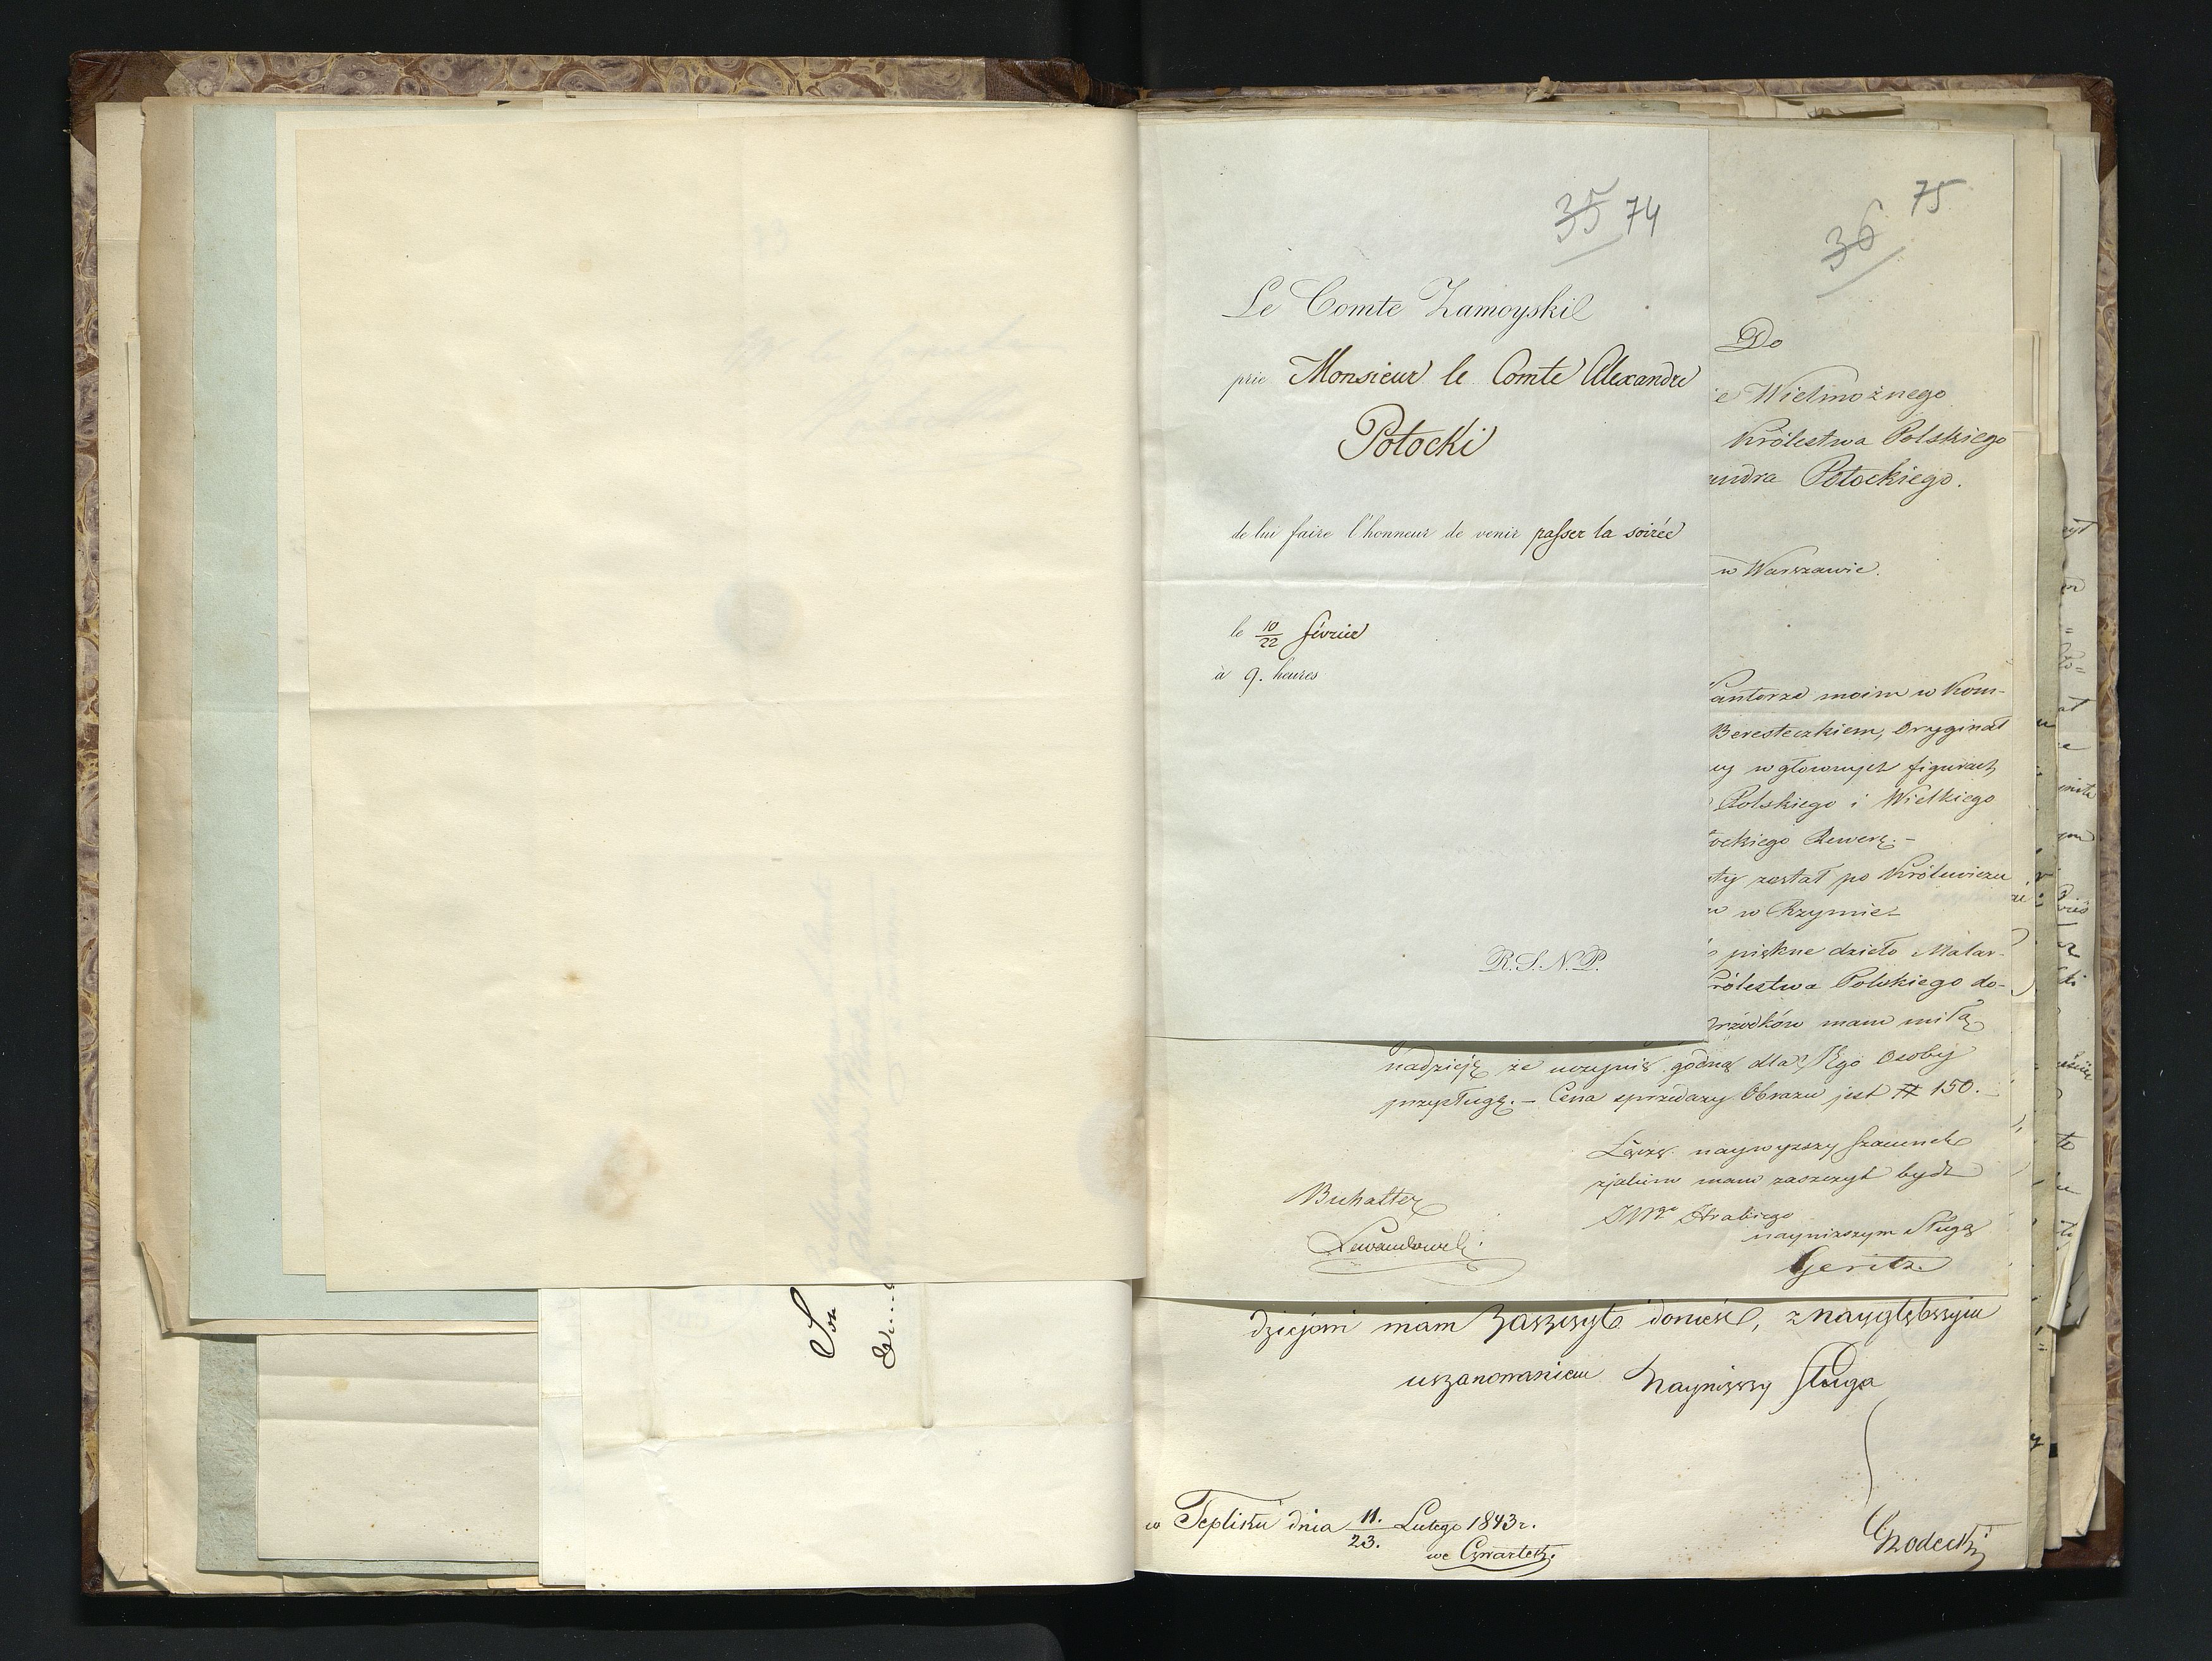 35 74
Le Comte Zamoyski
prie Monsieur le Comte Alexandre
Potocki
de lui faire l'honneur de venir passer la soirée
le 10/22 février
à 9. heures
R.S.N.P.
75
36
Do
Wielmożnego
Królestwa Polskiego
Potockiego.
w Warszawie.
moim w Kom-
Beresteczkiem, Oryginał
w głownych figurach
Polskiego i Wielkiego
Rewerę.-
został po Królewiczu
w Rzymie-
piękne dzieło Malar-
Polskiego do-
mam miłą
nadzieję że uczynię godną dla JKgo Osoby
przysługę.- Cena sprzedazy Obrazu jest # 150.-
Łączę naywyzszy szacunek
z jakim mam zaszczyt bydź
JWgo Hrabiego
nayniszszym Sługą
Geritz
Buhalter
Lewandowski
dziejami mam Zaszczyt donieść, z naygłębszym
uszanowaniem Nayniższy Sługa
w Tepliku dnia 11./23. Lutego 1843 r.
we Czwartek.
Grodecki
Son